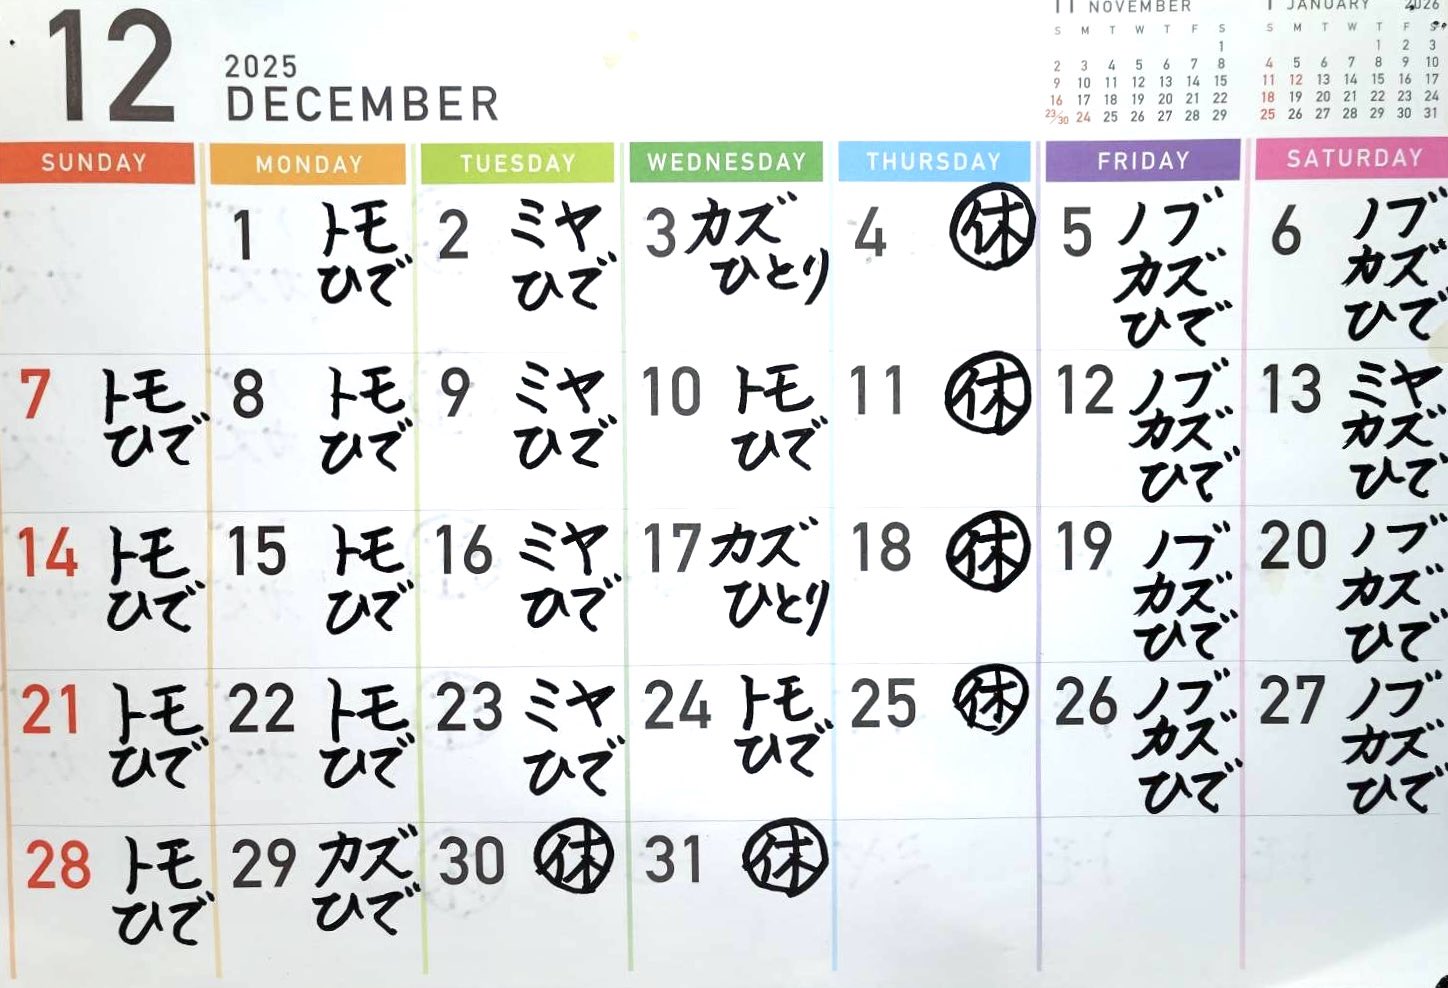 12
2025
DECEMBER
11 NOVEMBER
S M T W T F S
1
2 3 4 5 6 7 8
9 10 11 12 13 14 15
16 17 18 19 20 21 22
23/30 24 25 26 27 28 29
1 JANUARY 2026
S M T W T F S
1 2 3
4 5 6 7 8 9 10
11 12 13 14 15 16 17
18 19 20 21 22 23 24
25 26 27 28 29 30 31
SUNDAY MONDAY TUESDAY WEDNESDAY THURSDAY FRIDAY SATURDAY
1 トモ
ひで
2 ミヤ
ひで
3 カズ
ひとり
4 休
5 ノブ
カズ
ひで
6 ノブ
カズ
ひで
7 トモ
ひで
8 トモ
ひで
9 ミヤ
ひで
10 トモ
ひで
11 休
12 ノブ
カズ
ひで
13 ミヤ
カズ
ひで
14 トモ
ひで
15 トモ
ひで
16 ミヤ
ひで
17 カズ
ひとり
18 休
19 ノブ
カズ
ひで
20 ノブ
カズ
ひで
21 トモ
ひで
22 トモ
ひで
23 ミヤ
ひで
24 トモ
ひで
25 休
26 ノブ
カズ
ひで
27 ノブ
カズ
ひで
28 トモ
ひで
29 カズ
ひで
30 休
31 休